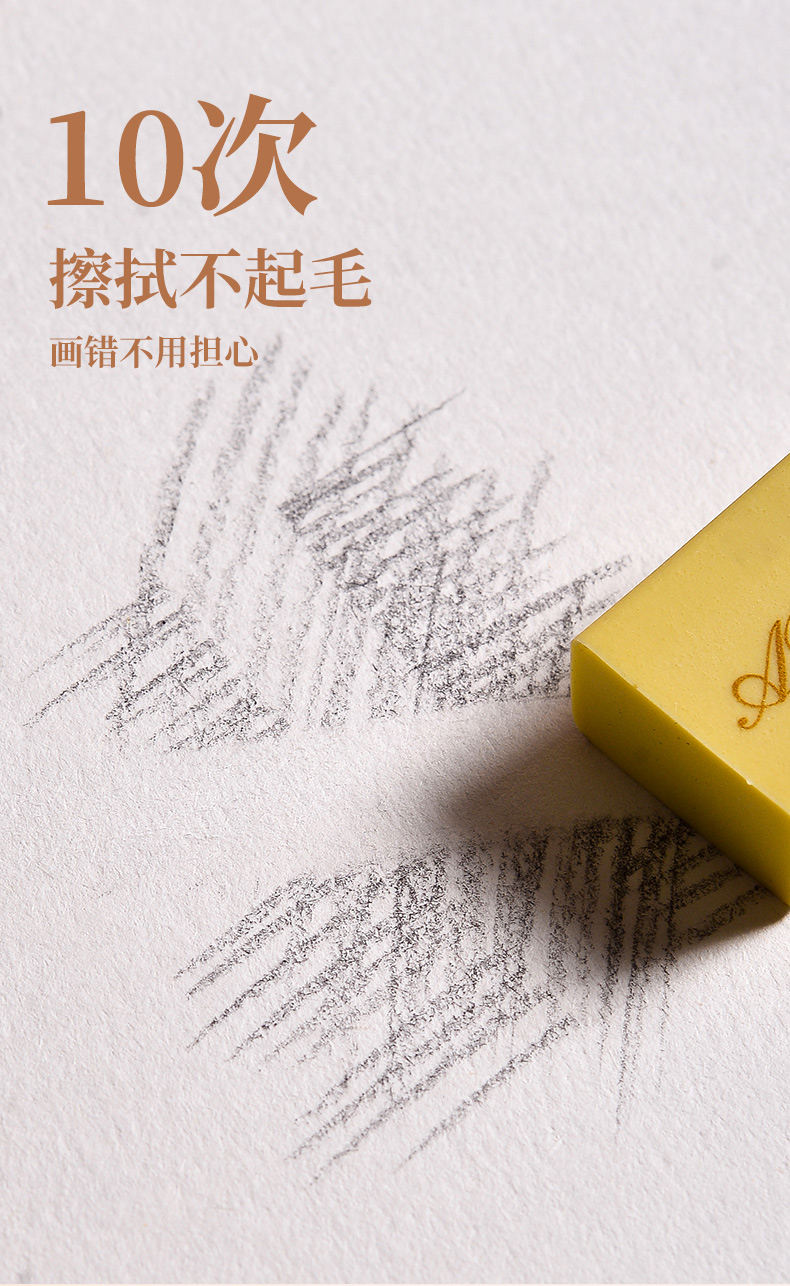 10次
擦拭不起毛
画错不用担心